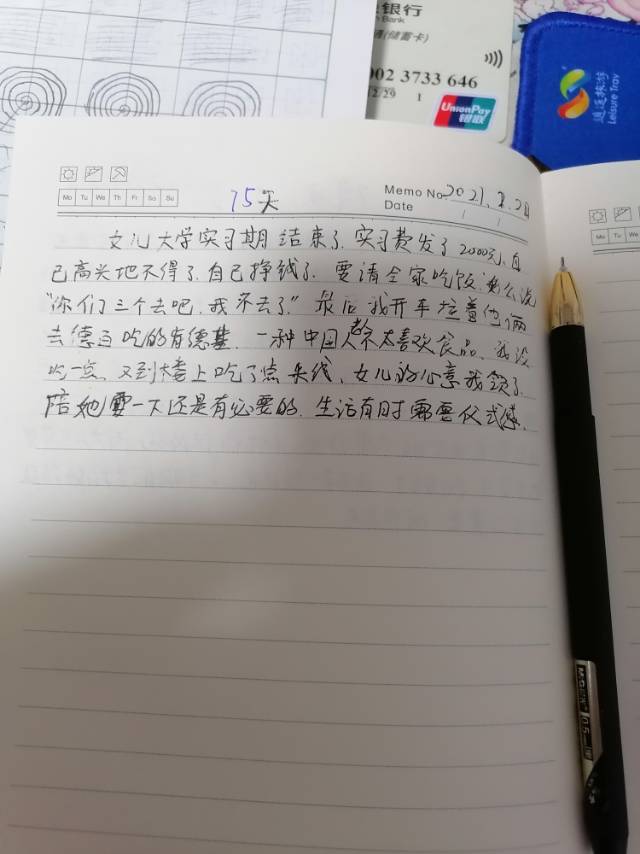 银行
Bank
(储蓄卡)
002 3733 646
2/29 1
UnionPay
银联
逍遥旅游
Leisure Trav
Memo No 2021.2.2
Date / /
Mo Tu We Th Fr Sa Su
15天
女儿大学实习期结束了.实习费发了2000元,自
己高兴地不得了.自己挣钱了.要请全家吃饭.我么说
“你们三个去吧.我不去了”最后我开车拉着他俩
去德百吃的肯德基.一种中国人都不太喜欢食品.我没
吃一点.又到楼上吃了点米线.女儿的心意我领了.
陪她耍一下还是有必要的.生活有时需要仪式感.
Mo Tu We
M&G
0.5